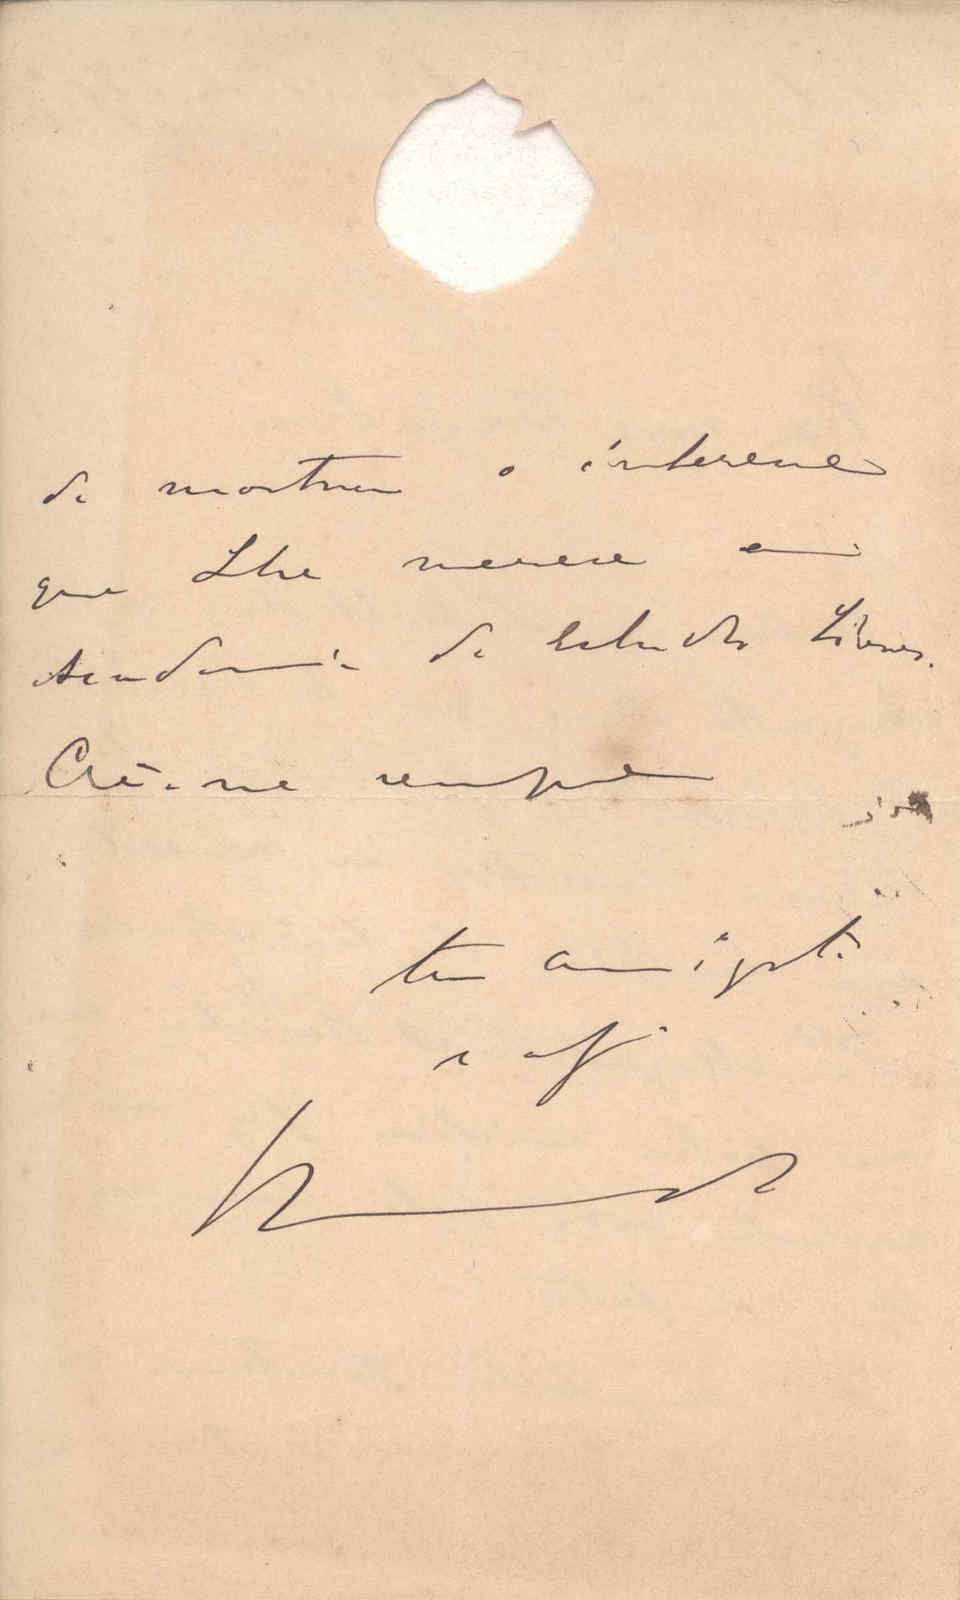 de mostrar o interesse
que Lhe merece a
Academia de Estudos Livres.
Crê-me sempre
teu amigo
e aff